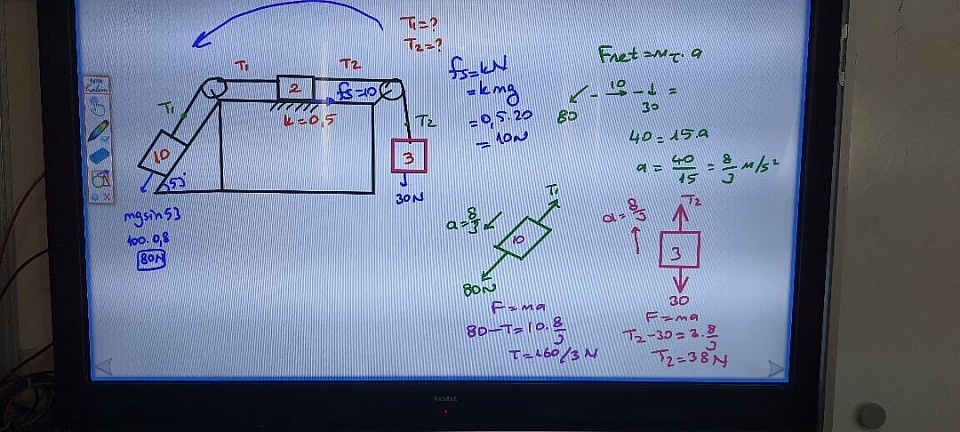 T₁=?
T₂=?
T₁
T₂
2
fs=10
k=0,5
T₁
10
53°
T₂
3
30N
mgsin53
100.0,8
80N
fs=kN
=kmg
=0,5.20
=10N
Fnet=mT.a
80 - 10 - 30 =
40=15.a
a=40/15=8/3 m/s²
a=8/3
T₁
10
80N
F=ma
80-T=10.8/3
T=160/3 N
a=8/3
T₂
3
30
F=ma
T₂-30=3.8/3
T₂=38N
VESTEL